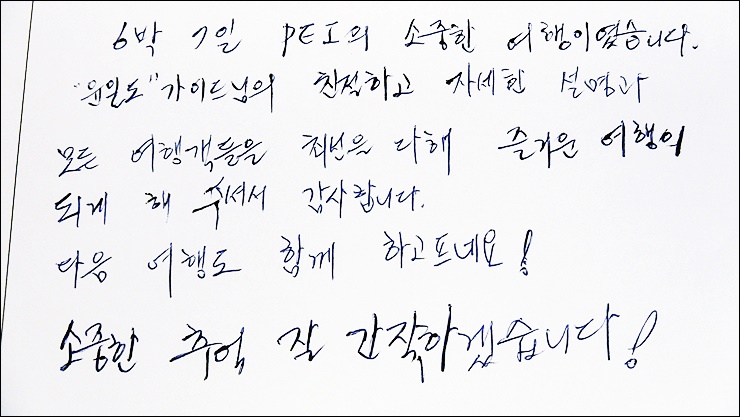 6박 7일 PEI의 소중한 여행이였습니다.
"윤일도" 가이드님의 친절하고 자세한 설명과
모든 여행객들을 최선을 다해 즐거운 여행이
되게 해 주셔서 감사합니다.
다음 여행도 함께 하고프네요!
소중한 추억 잘 간직하겠습니다!